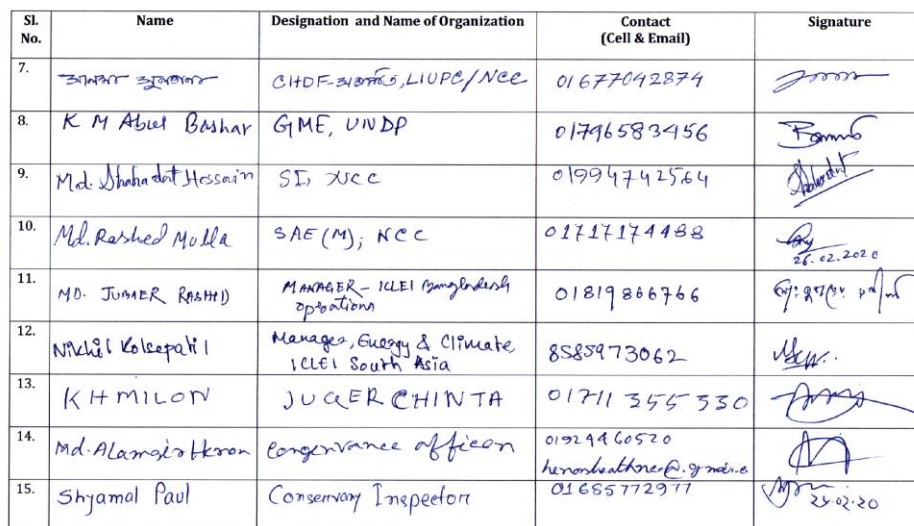 Sl. No. Name Designation and Name of Organization Contact (Cell & Email) Signature
7. CHDF-, LIUPC/NCC 01677042874
8. K M Abul Bashar GME, UNDP 01796583456
9. Md. Shahadat Hossain SI, NCC 01994742564
10. Md. Rashed Mulla SAE (M), NCC 01717174488
26.02.2020
11. MD. JUBAER RASHID MANAGER - ICLEI Bangladesh operations 01819866766
12. Nikhil Kolsepatil Manager, Energy & Climate, ICLEI South Asia 8585973062
13. KH MILON JUGER CHINTA 01711 355 330
14. Md. Alamgir Heron congervance officer 01924460520
15. Shyamal Paul Conservancy Inspector 01685772977